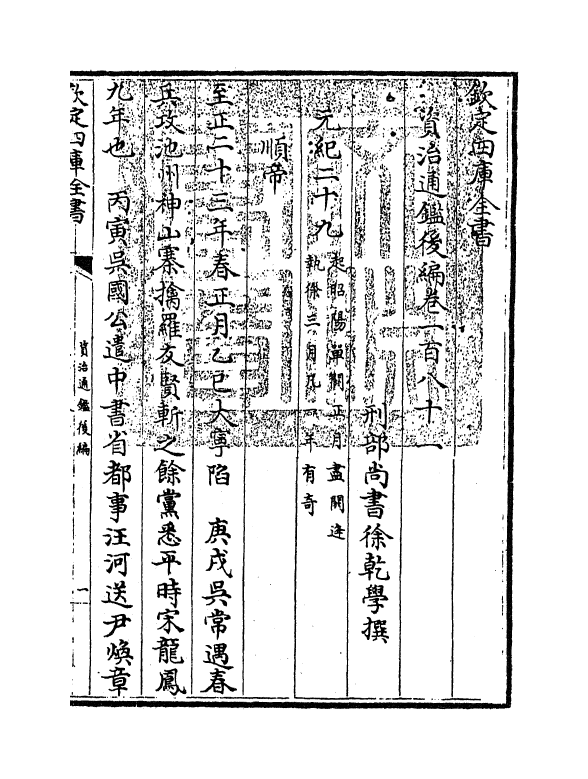 欽定四庫全書
資治通鑑後編卷一百八十一
刑部尚書徐乾學撰
元紀二十九
起昭陽單閼正月盡閼逢
執徐三月凡一年有奇
順帝
至正二十三年春正月乙巳大寧陷　庚戌吳常遇春
兵攻池州神山寨擒羅友賢斬之餘黨悉平時宋龍鳳
九年也　丙寅吳國公遣中書省都事汪河送尹煥章
欽定四庫全書
資治通鑑後編
一